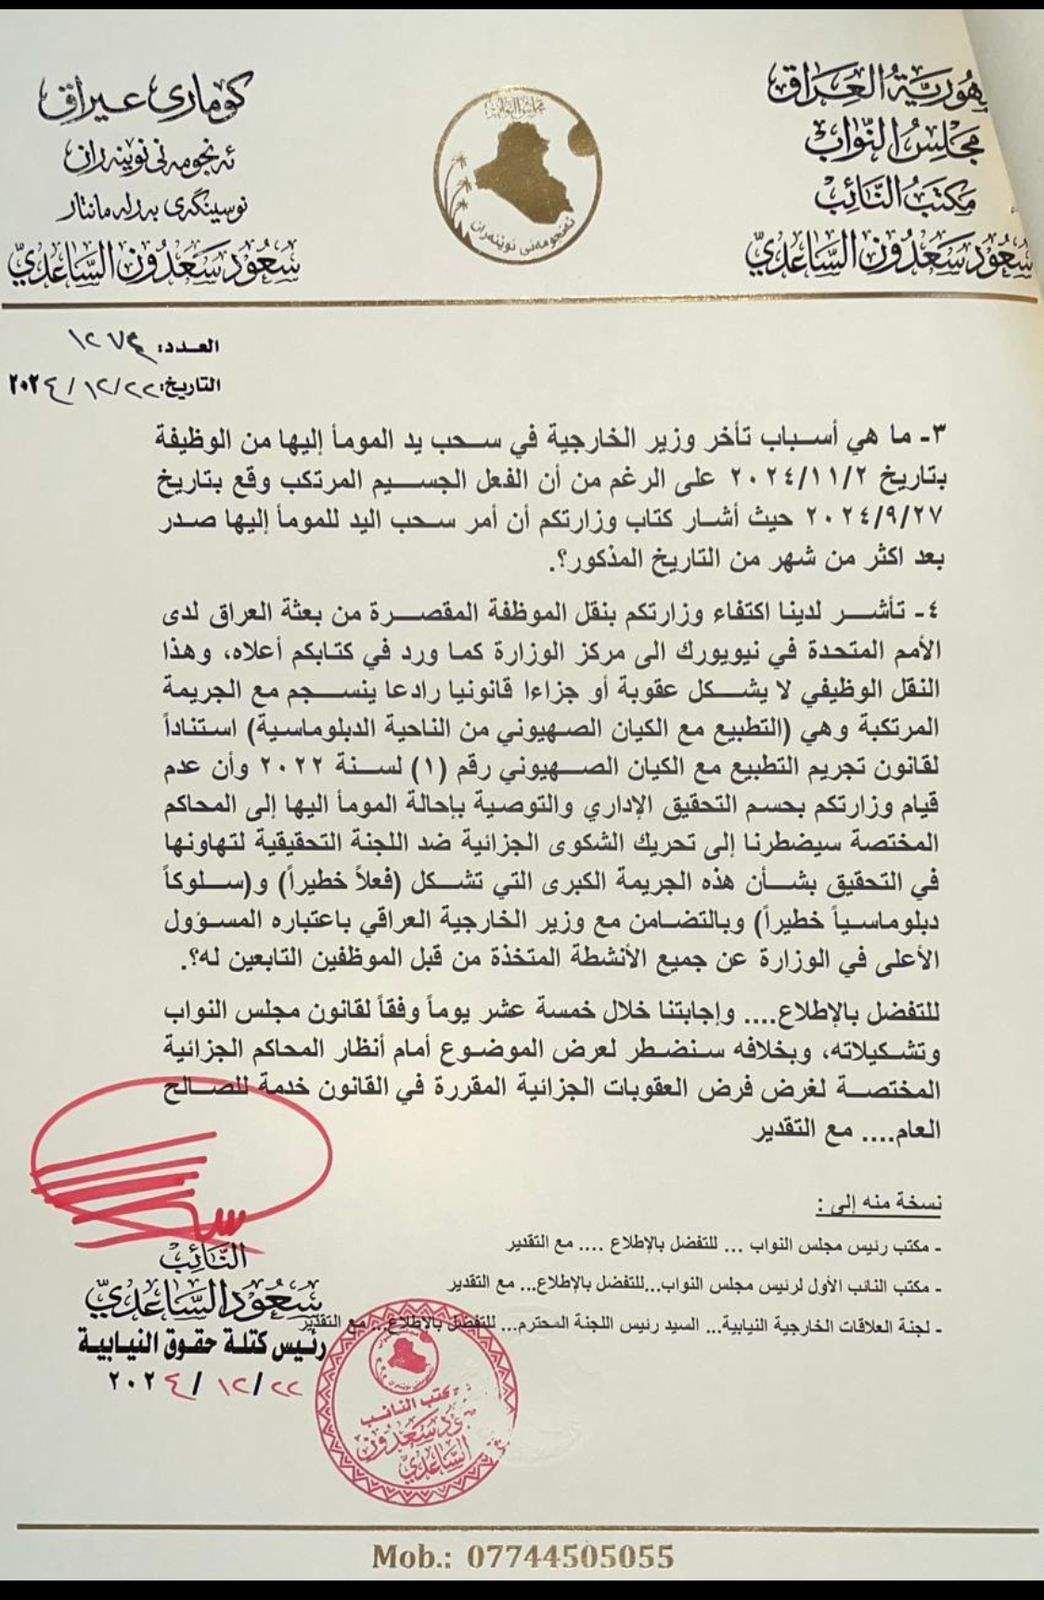 جمهورية العراق
مجلس النواب
مكتب النائب
سعود سعدون الساعدي
كۆماری عیراق
ئەنجومەنی نوینەران
نوسینگەی پەرلەمانتار
سعود سعدون الساعدي
مجلس النواب
ئەنجومەنی نوێنەران
العدد:
التاريخ: ٢٢/١٢/٢٠٢٤
٣- ما هي أسباب تأخر وزير الخارجية في سحب يد المومأ إليها من الوظيفة
بتاريخ ٢٠٢٤/١١/٢ على الرغم من أن الفعل الجسيم المرتكب وقع بتاريخ
٢٠٢٤/٩/٢٧ حيث أشار كتاب وزارتكم أن أمر سحب اليد للمومأ إليها صدر
بعد اكثر من شهر من التاريخ المذكور؟.
٤- تأشر لدينا اكتفاء وزارتكم بنقل الموظفة المقصرة من بعثة العراق لدى
الأمم المتحدة في نيويورك الى مركز الوزارة كما ورد في كتابكم أعلاه، وهذا
النقل الوظيفي لا يشكل عقوبة أو جزاءا قانونيا رادعا ينسجم مع الجريمة
المرتكبة وهي (التطبيع مع الكيان الصهيوني من الناحية الدبلوماسية) استناداً
لقانون تجريم التطبيع مع الكيان الصهيوني رقم (١) لسنة ٢٠٢٢ وأن عدم
قيام وزارتكم بحسم التحقيق الإداري والتوصية بإحالة المومأ اليها إلى المحاكم
المختصة سيضطرنا إلى تحريك الشكوى الجزائية ضد اللجنة التحقيقية لتهاونها
في التحقيق بشأن هذه الجريمة الكبرى التي تشكل (فعلاً خطيراً) و(سلوكاً
دبلوماسياً خطيراً) وبالتضامن مع وزير الخارجية العراقي باعتباره المسؤول
الأعلى في الوزارة عن جميع الأنشطة المتخذة من قبل الموظفين التابعين له؟.
للتفضل بالإطلاع.... وإجابتنا خلال خمسة عشر يوماً وفقاً لقانون مجلس النواب
وتشكيلاته، وبخلافه سنضطر لعرض الموضوع أمام أنظار المحاكم الجزائية
المختصة لغرض فرض العقوبات الجزائية المقررة في القانون خدمة للصالح
العام.... مع التقدير
نسخة منه إلى:
- مكتب رئيس مجلس النواب ... للتفضل بالإطلاع .... مع التقدير
- مكتب النائب الأول لرئيس مجلس النواب...للتفضل بالإطلاع... مع التقدير
- لجنة العلاقات الخارجية النيابية... السيد رئيس اللجنة المحترم... للتفضل بالإطلاع... مع التقدير
النائب
سعود الساعدي
رئيس كتلة حقوق النيابية
٢٢/١٢/٢٠٢٤
مكتب النائب
سعود سعدون
الساعدي
Mob.: 07744505055